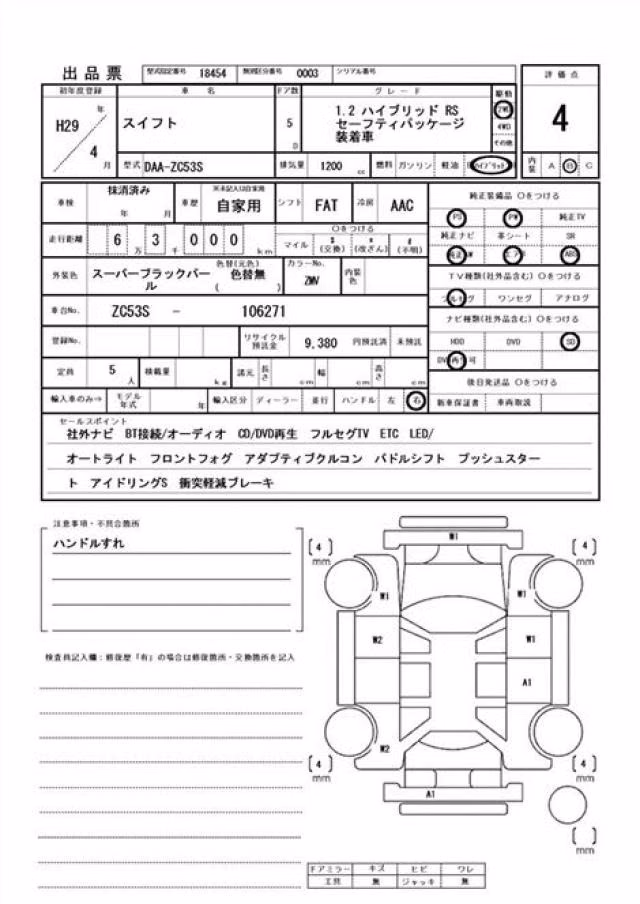 出品票 型式指定番号 18454 類別区分番号 0003 シリアル番号
初年度登録 車 名 ドア数 グレード 駆動 評価点
H29 年 4 月
スイフト
5 D
1.2 ハイブリッド RS
セーフティパッケージ
装着車
2WD
4WD
その他
4
型式 DAA-ZC53S 排気量 1200 cc 燃料 ガソリン 軽油 ハイブリッド 内装 A B C
車検 抹消済み 年 月 車歴 ※未記入は自家用 自家用 シフト FAT 冷房 AAC
純正装備品 〇をつける
PS PW 純正TV
純正ナビ 革シート SR
純正AW エアB ABS
走行距離 6 万 3 千 0 0 0 km
〇をつける
マイル $ (交換) * (改ざん) # (不明)
外装色 スーパーブラックパール 色替(元色) 色替無 ( ) カラーNo. ZMV 内装色
TV種類(社外品含む) 〇をつける
フルセグ ワンセグ アナログ
車台No. ZC53S - 106271
ナビ種類(社外品含む) 〇をつける
HDD DVD SD
DVD再生可
登録No. リサイクル預託金 9,380 円預託済 未預託
定員 5 人 積載量 kg 諸元 長さ cm 幅 cm 高さ cm
後日発送品 〇をつける
新車保証書 車両取説
輸入車のみ⇒ モデル年式 年 輸入区分 ディーラー 並行 ハンドル 左 右
セールスポイント
社外ナビ BT接続/オーディオ CD/DVD再生 フルセグTV ETC LED/
オートライト フロントフォグ アダプティブクルコン パドルシフト プッシュスター
ト アイドリングS 衝突軽減ブレーキ
注意事項・不具合箇所
ハンドルすれ
検査員記入欄：修復歴「有」の場合は修復箇所・交換箇所を記入
W1
[4] mm [4] mm
W1 W1
W2 W1
A1
W2
[4] mm [4] mm
A1
[ ] mm
ドアミラー キズ ヒビ ワレ
工具 無 ジャッキ 無